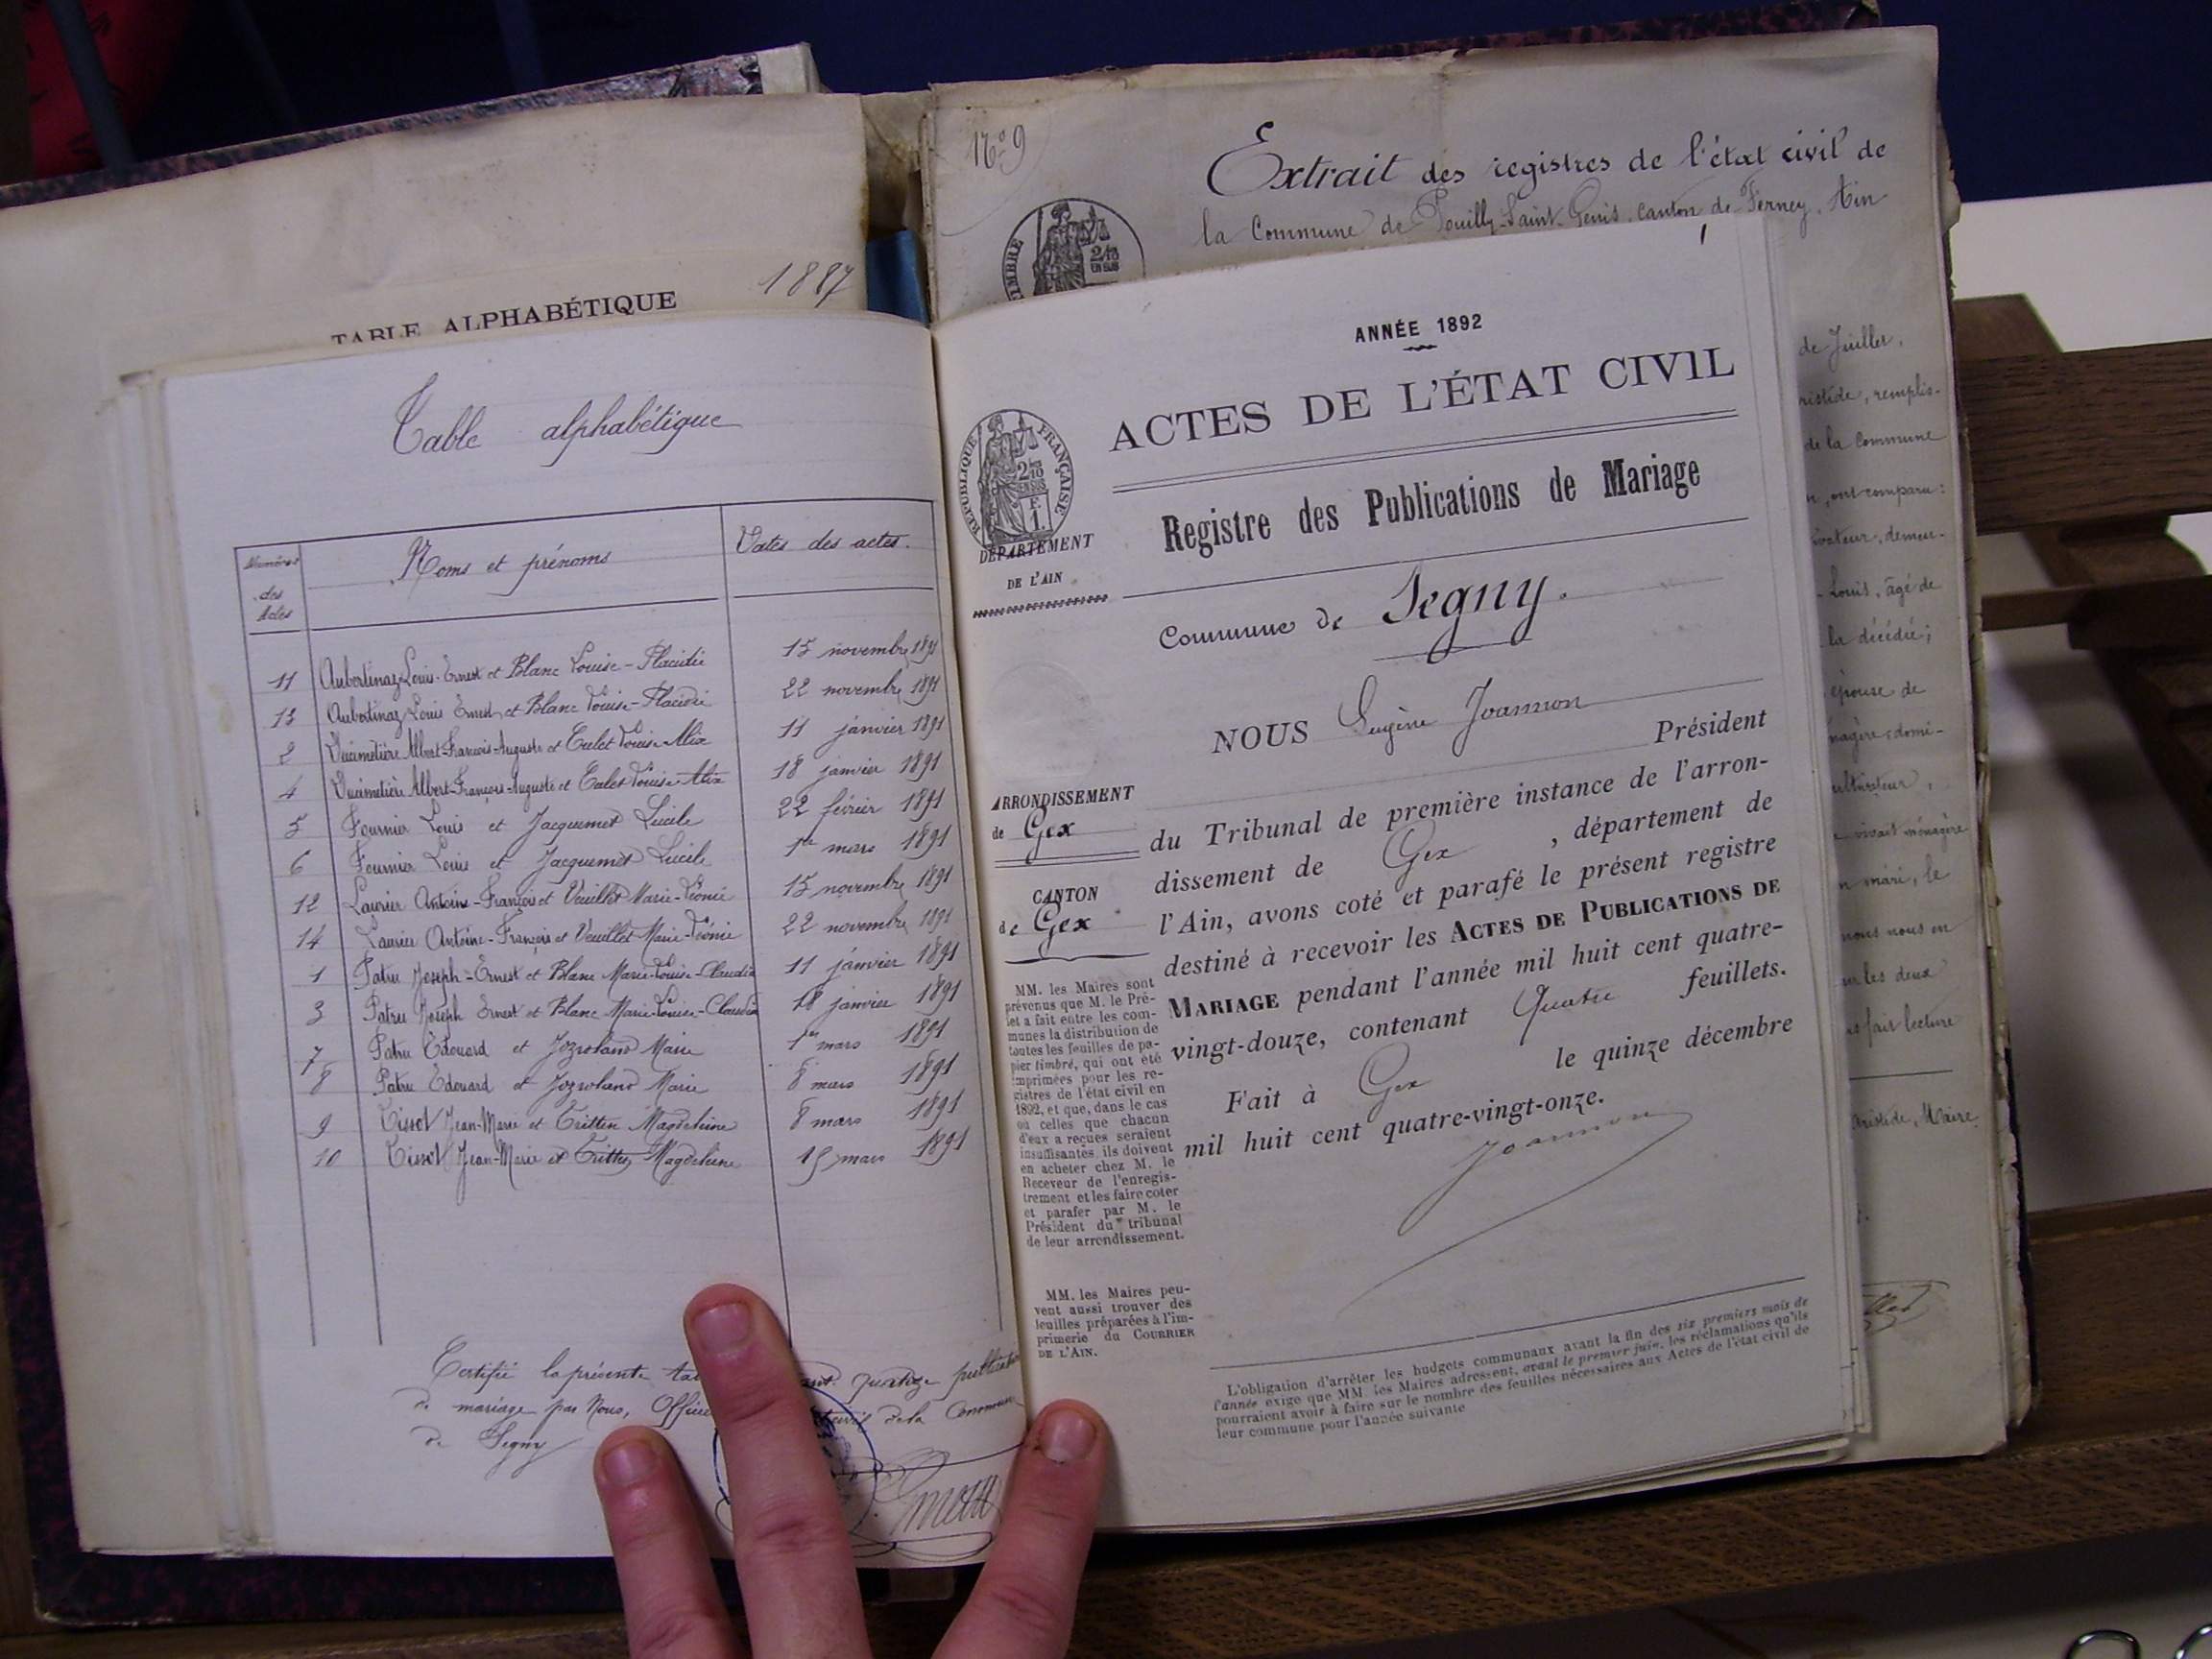 1887
TABLE ALPHABÉTIQUE
Table alphabétique
Numéros des Actes
Noms et prénoms
Dates des actes.
11 Aubertinaz Louis-Ernest et Blanc Louise-Placidie 15 novembre 1891
13 Aubertinaz Louis Ernest et Blanc Louise-Placidie 22 novembre 1891
2 Albert-François-Auguste et Louise-Alix 11 janvier 1891
4 Albert-François-Auguste et Louise-Alix 18 janvier 1891
5 Fournier Louis et Jacquemet Lucile 22 février 1891
6 Fournier Louis et Jacquemet Lucile 1er mars 1891
12 Antoine-François et Veuillet Marie-Léonie 15 novembre 1891
14 Antoine-François et Veuillet Marie-Léonie 22 novembre 1891
1 Patru Joseph-Ernest et Blanc Marie-Louise-Claudia 11 janvier 1891
3 Patru Joseph Ernest et Blanc Marie-Louise-Claudia 18 janvier 1891
7 Patru Edouard et Marie 1er mars 1891
8 Patru Edouard et Marie 8 mars 1891
9 Tissot Jean-Marie et Tritten Magdeleine 8 mars 1891
10 Tissot Jean-Marie et Magdeleine 15 mars 1891
Certifié la présente
de mariage par Nous, civil de la Commune
de Segny
No 9
Extrait des registres de l'état civil de
la Commune de Pouilly-Saint-Genis, canton de Ferney, Ain
TIMBRE
2/10
EN SUS
ANNÉE 1892
ACTES DE L'ÉTAT CIVIL
Registre des Publications de Mariage
RÉPUBLIQUE FRANÇAISE
2/10
EN SUS
E
1.
DÉPARTEMENT
DE L'AIN
Commune de Segny.
NOUS Eugène Joannon
Président
du Tribunal de première instance de l'arron-
dissement de Gex, département de
l'Ain, avons coté et parafé le présent registre
destiné à recevoir les ACTES DE PUBLICATIONS DE
MARIAGE pendant l'année mil huit cent quatre-
vingt-douze, contenant Quatre feuillets.
Fait à Gex le quinze décembre
mil huit cent quatre-vingt-onze.
Joannon
ARRONDISSEMENT
de Gex
CANTON
de Gex
MM. les Maires sont
prévenus que M. le Pré-
fet a fait entre les com-
munes la distribution de
toutes les feuilles de pa-
pier timbré, qui ont été
imprimées pour les re-
gistres de l'état civil en
1892, et que, dans le cas
où celles que chacun
d'eux a reçues seraient
insuffisantes, ils doivent
en acheter chez M. le
Receveur de l'enregis-
trement et les faire coter
et parafer par M. le
Président du tribunal
de leur arrondissement.
MM. les Maires peu-
vent aussi trouver des
feuilles préparées à l'im-
primerie du COURRIER
DE L'AIN.
L'obligation d'arrêter les budgets communaux avant la fin des six premiers mois de
l'année exige que MM. les Maires adressent, avant le premier juin, les réclamations qu'ils
pourraient avoir à faire sur le nombre des feuilles nécessaires aux Actes de l'état civil de
leur commune pour l'année suivante
de Juillet,
remplis-
de la Commune
ont comparu:
demeu-
Louis, âgé de
la décédée;
épouse de
domi-
vivait ménagère
mari, le
nous nous en
les deux
fait lecture
Maire